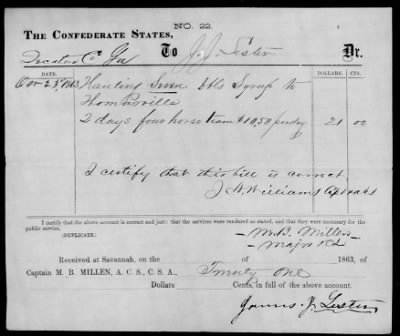 NO. 22.
THE CONFEDERATE STATES,
Decatur Co Ga To J. J. Lester Dr.
DATE. DOLLARS. CTS.
Nov 28, 1863 Hauling Seven Bbls Syrup to
Thomasville
2 days four horse team $10.50 per day 21 00
I certify that this bill is correct
J. H. Williams Capt &
I certify that the above account is correct and just; that the services were rendered as stated, and that they were necessary for the
public service.
(DUPLICATE) M. B. Millen
Major &
Received at Savannah, on the of 1863, of
Captain M. B. MILLEN, A. C. S., C. S. A., Twenty One
Dollars Cents, in full of the above account.
James J. Lester